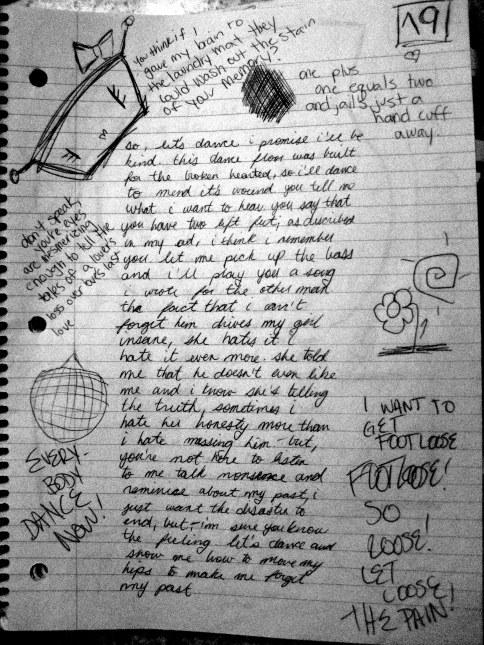 19
You think if I
gave my brain to
the laundry mat they
could wash out the stain
of your memory?
one plus
one equals two
and jails just a
hand cuff
away.
so, let's dance i promise i'll be
kind. this dance floor was built
for the broken hearted, so i'll dance
to mend it's wound you tell me
what i want to hear. you say that
you have two left feet; as discribed
in my ad, i think i remember
you let me pick up the bass
and i'll play you a song
i wrote for the other man
the fact that i can't
forget him drives my girl
insane, she hates it i
hate it even more. she told
me that he doesn't even like
me and i know she's telling
the truth, sometimes i
hate her honesty more than
i hate missing him but,
you're not here to listen
to me talk nonsence and
reminise about my past, i
just want the disaster to
end, but, i'm sure you know
the feeling let's dance and
show me how to move my
hips to make me forget
my past.
don't speak,
you're eyes
are mesmerizing
enough to tell the
tales of a
loss over
love
EVERY-
BODY
DANCE
NOW!
I WANT TO
GET
FOOTLOOSE
FOOTLOOSE!
SO
LOOSE!
LET
LOOSE!
THE PAIN!